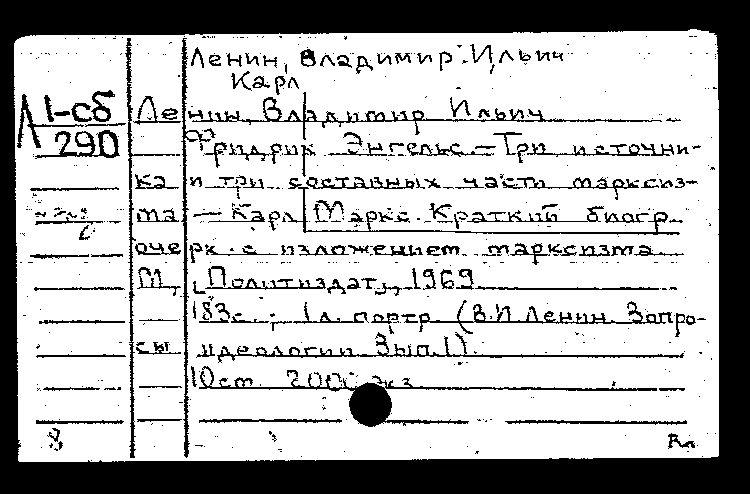 Ленин, Владимир Ильич
Карл
1-сб
290
Ленин, Владимир Ильич
Фридрих Энгельс. — Три источни-
ка и три составных части марксиз-
ма — Карл Маркс. Краткий биогр.
очерк с изложением марксизма
М, Политиздат, 1969
183с.; 1л. портр. (В.И Ленин. Запро-
сы идеологии Вып.1).
10см 2000 экз
8